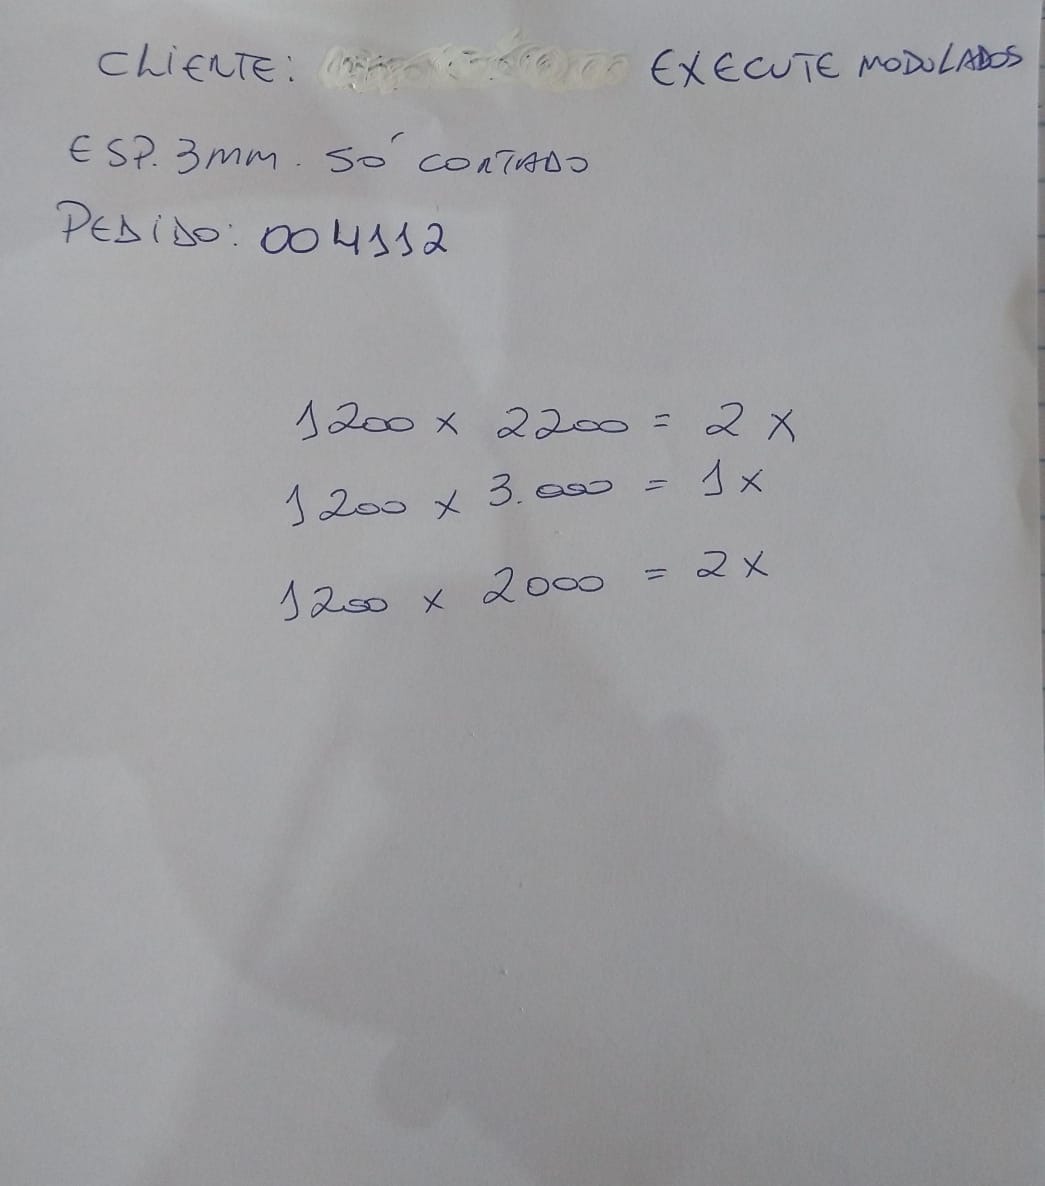 CLIENTE: EXECUTE MODULADOS
ESP. 3MM. SÓ CORTADO
PEDIDO: 004112
1200 x 2200 = 2 x
1200 x 3.000 = 1 x
1200 x 2000 = 2 x